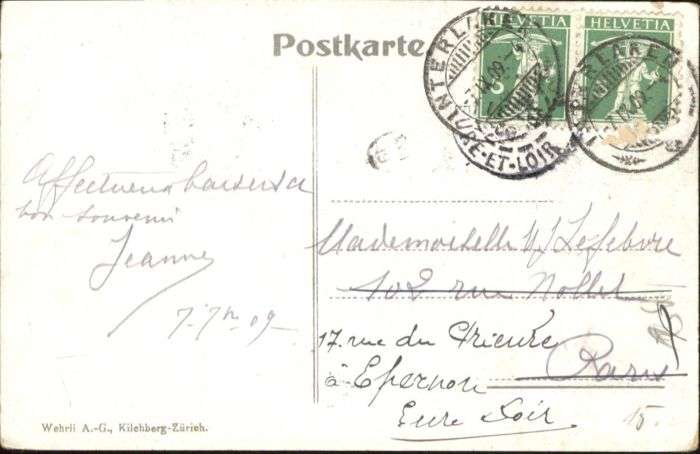 Postkarte
HELVETIA HELVETIA
5
INTERLAKEN
INTERLAKEN
EURE-ET-LOIR
Affectueux baisers a
bon souvenir
Jeanne
7. 7bre 09
Mademoiselle Lefebvre
102 rue Nollet
17. rue du Prieuré
à Epernon Paris
Eure Loir
15.
Wehrli A.-G., Kilchberg-Zürich.